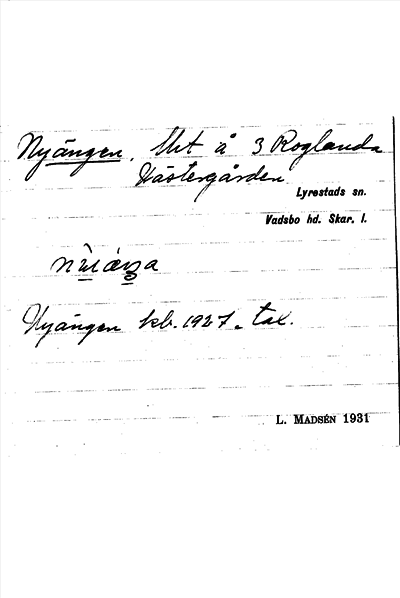 Nyängen, Utt å 3 Roglanda
Västergården
Lyrestads sn.
Vadsbo hd. Skar. l.
Nyängen kb. 1927. tax.
L. MADSÉN 1931